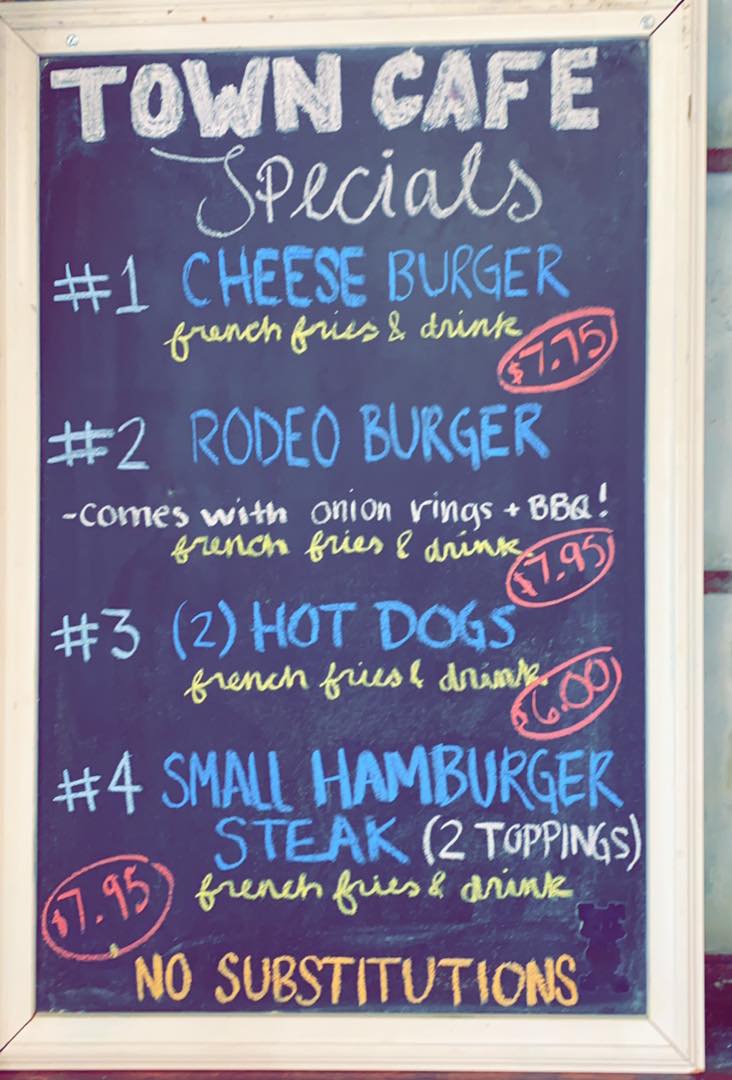 TOWN CAFE
Specials
#1 CHEESE BURGER
french fries & drink
$7.75
#2 RODEO BURGER
-comes with onion rings + BBQ!
french fries & drink
$7.95
#3 (2) HOT DOGS
french fries & drink
$6.00
#4 SMALL HAMBURGER
STEAK (2 TOPPINGS)
french fries & drink
$7.95
NO SUBSTITUTIONS